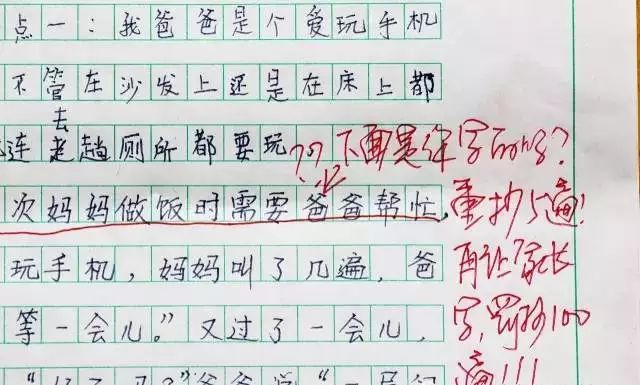 点一：我爸爸是个爱玩手机
不管在沙发上还是在床上都
连去趟厕所都要玩
次妈妈做饭时需要爸爸帮忙，
玩手机，妈妈叫了几遍，爸
等一会儿。”又过了一会儿，
？？下面是 字 ？
重抄 遍！
再让家长
字，罚抄100
遍！！！